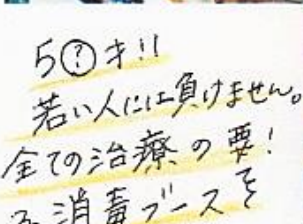 5?才!!
若い人には負けません。
全ての治療の要!
消毒ブースを